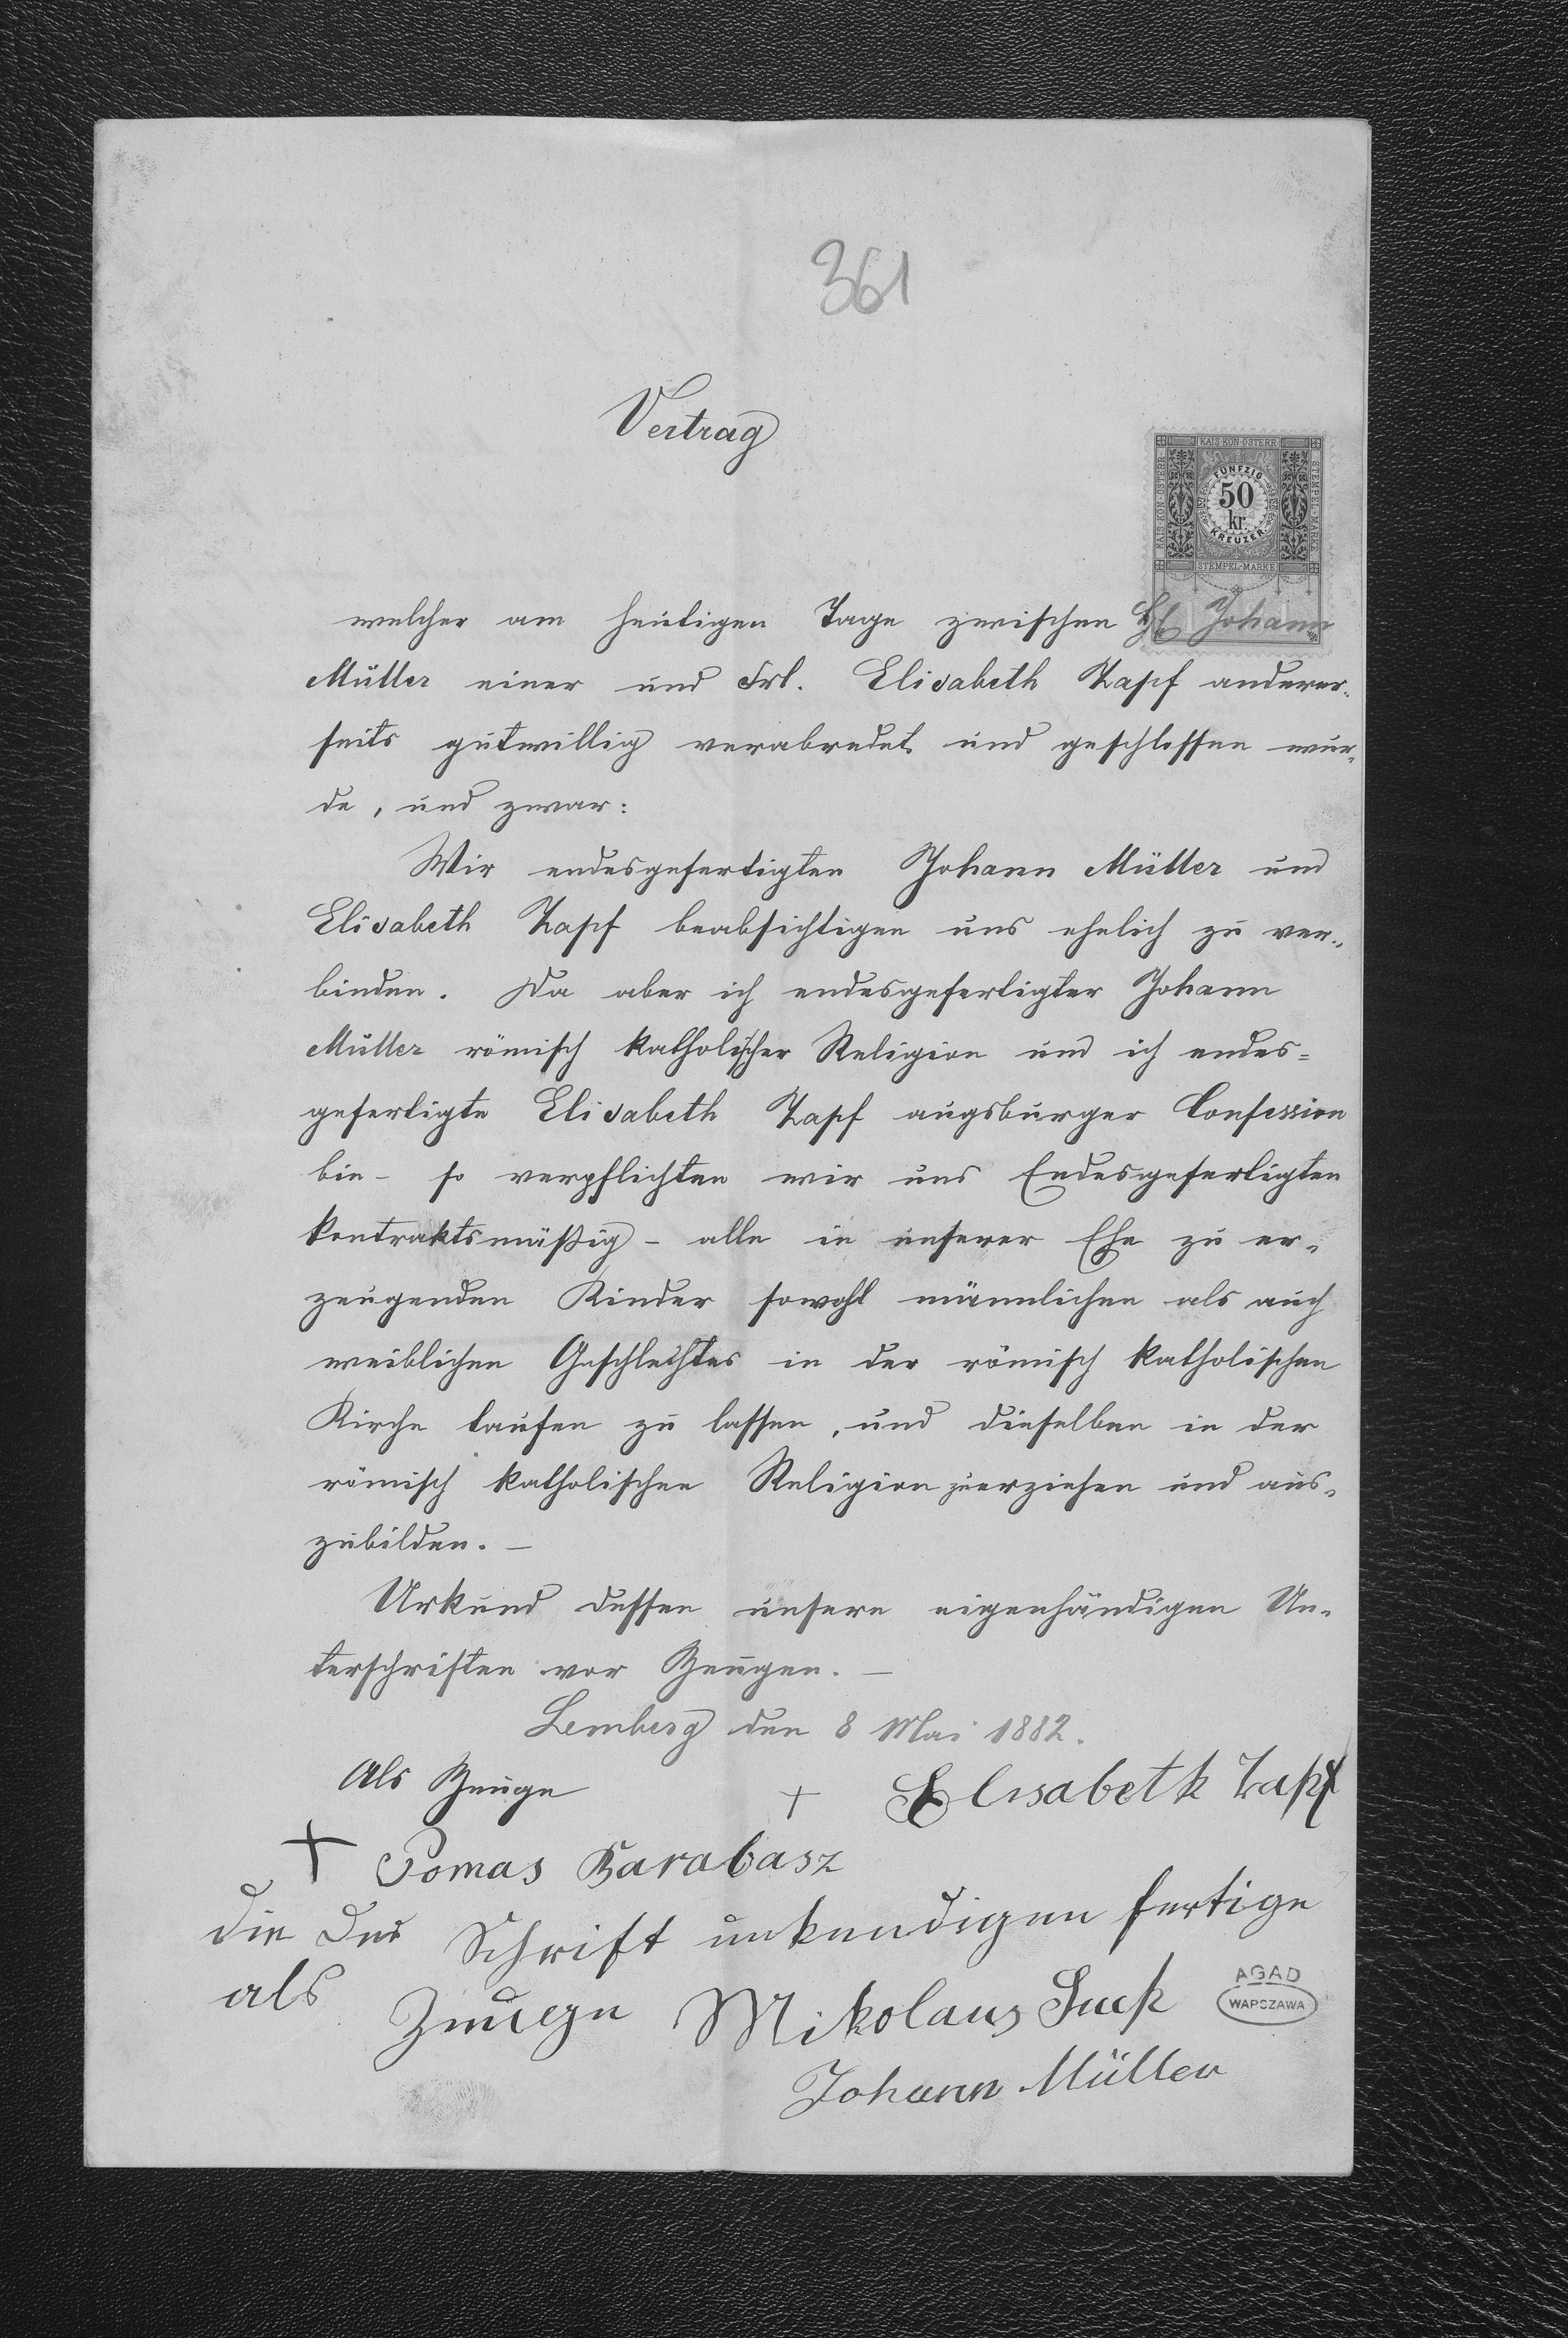 361
Vertrag
KAIS·KÖN·ÖSTERR·
KAIS·KÖN·ÖSTERR·
STEMPEL-MARKE
FÜNFZIG
50
kr.
KREUZER
STEMPEL-MARKE
welcher am heutigen Tage zwischen H. Johann
Müller einer und Frl. Elisabeth Zapf anderer-
seits gutwillig verabredet und geschlossen wur-
de, und zwar:
Wir endesgefertigten Johann Müller und
Elisabeth Zapf beabsichtigen uns ehelich zu ver-
binden. Da aber ich endesgefertigter Johann
Müller römisch katholischer Religion und ich endes=
gefertigte Elisabeth Zapf augsburger Confession
bin – so verpflichten wir uns Endesgefertigten
kontraktsmäßig – alle in unserer Ehe zu er-
zeugenden Kinder sowohl männlichen als auch
weiblichen Geschlechtes in der römisch katholischen
Kirche taufen zu lassen, und dieselben in der
römisch katholischen Religion zu erziehen und aus-
zubilden. –
Urkund dessen unsere eigenhändigen Un-
terschriften vor Zeugen. –
Lemberg den 8 Mai 1882.
Als Zeuge
+ Elisabeth Zapf
+ Tomas Karabasz
die des Schrift unkundigen fertige
als Zeuge Mikolaus
Johann Müller
AGAD
WARSZAWA